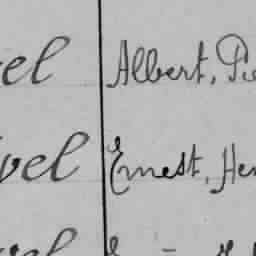 el Albert, Pi
vel Ernest, Hen